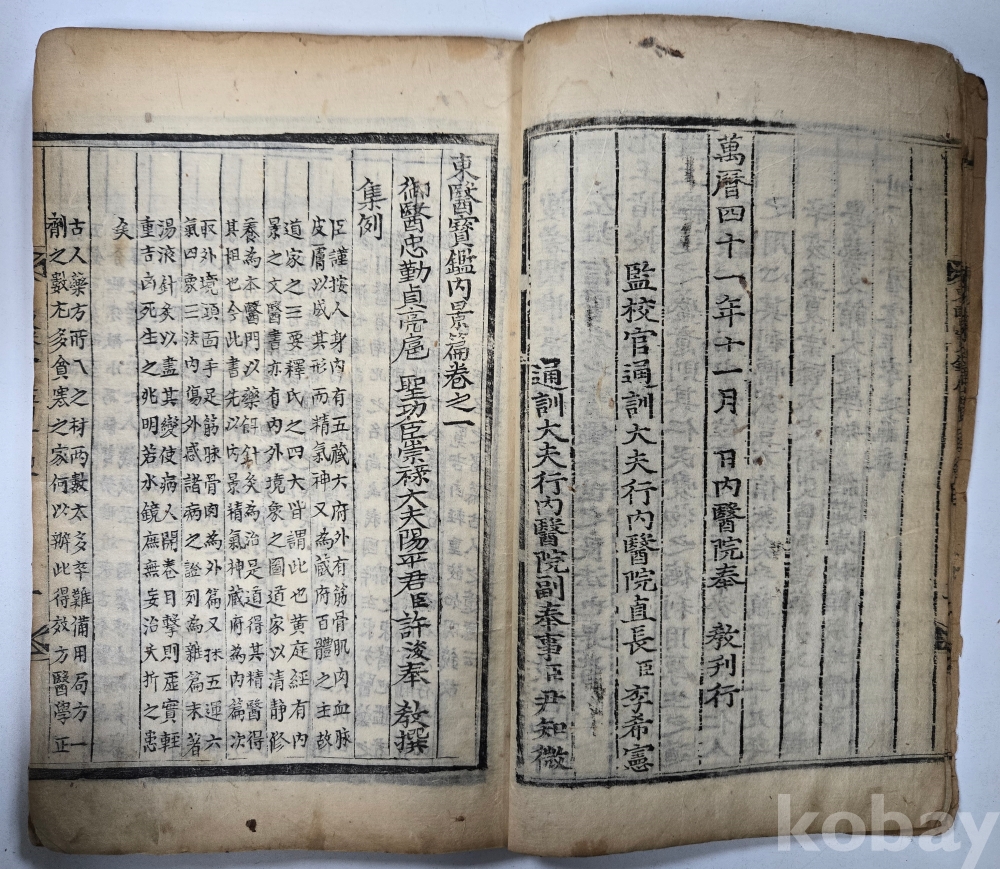 萬曆四十一年十一月 日內醫院奉 教刊行
監校官通訓大夫行內醫院直長臣李希憲
通訓大夫行內醫院副奉事臣尹知微
東醫寶鑑內景篇卷之一
御醫忠勤貞亮扈 聖功臣崇祿大夫陽平君臣許浚奉 教撰
集例
臣謹按人身內有五藏六府外有筋骨肌肉血脉
皮膚以成其形而精氣神又為藏府百體之主故
道家之三要釋氏之四大皆謂此也黃庭經有內
景之文醫書亦有內外境象之圖道家以清静修
養為本醫門以藥餌針灸為治是道得其精醫得
其粗也今此書先以內景精氣神藏府為內篇次
取外境頭面手足筋脉骨肉為外篇又採五運六
氣四象三法內傷外感諸病之證列為雜篇末著
湯液針灸以盡其變使病人開卷目擊則虛實輕
重吉凶死生之兆明若水鏡庶無妄治夭折之患
矣
古人藥方所入之材両數太多卒難備用局方一
劑之數尤多貧寒之家何以辦此得效方醫學正
kobay